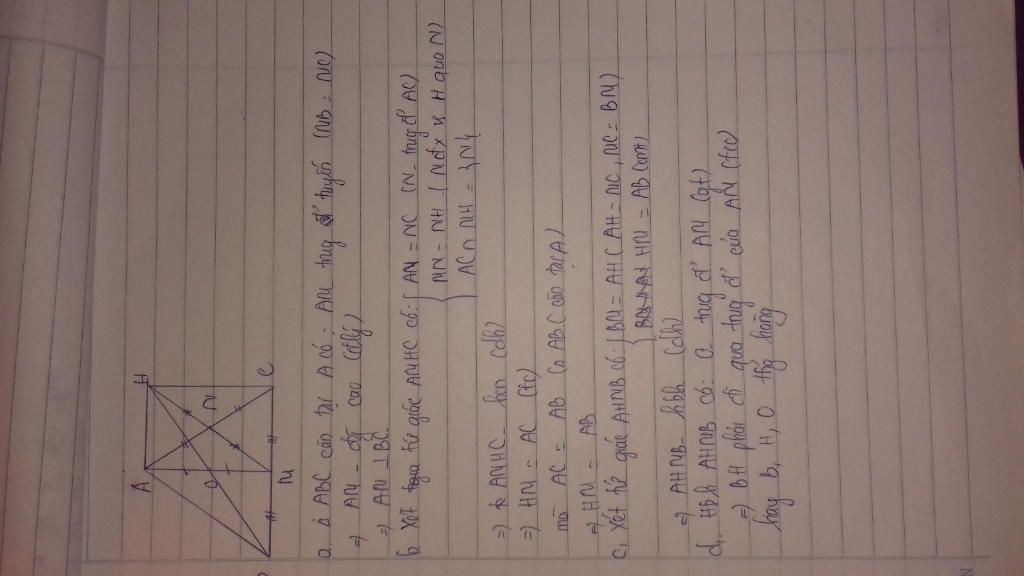 A
H
O
N
M
C
a. Δ ABC cân tại A có: AM trung tuyến (MB = MC)
=> AM - đg cao (đlý)
=> AM ⊥ BC
b, Xét tứ giác AMHC có: { AN = NC (N - trung đ' AC)
MN = NH (N đx H qua N)
AC ∩ MH = {N}
=> AMHC - hcn (dh)
=> HM = AC (t/c)
mà AC = AB (Δ ABC cân tại A)
=> HM = AB
c, Xét tứ giác AHMB có: { BM = AH (AH = MC, MC = BM)
HM = AB (cmt)
=> AHMB - hbh (dh)
d, Hbh AHMB có: O trung đ' AM (gt)
=> BH phải đi qua trung đ' của AM (t/c)
hay B, H, O thẳng hàng